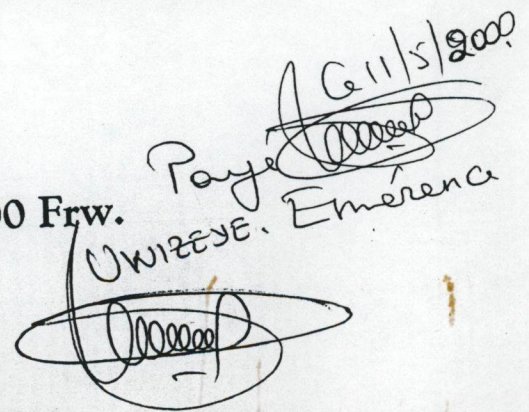 Ce 11/5/2000
Payé
00 Frw.
UWIZEYE. Emérence